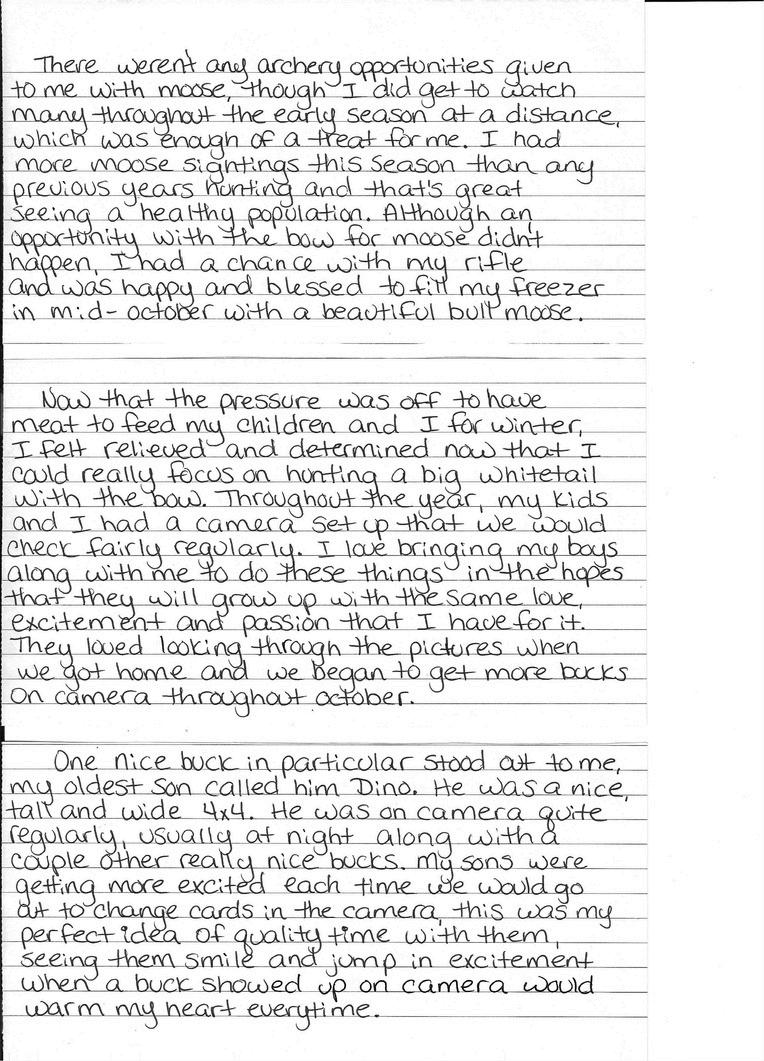 There weren't any archery opportunities given
to me with moose, though I did get to watch
many throughout the early season at a distance,
which was enough of a treat for me. I had
more moose sightings this season than any
previous years hunting and that's great
seeing a healthy population. Although an
opportunity with the bow for moose didn't
happen, I had a chance with my rifle
and was happy and blessed to fill my freezer
in mid-october with a beautiful bull moose.
Now that the pressure was off to have
meat to feed my children and I for winter,
I felt relieved and determined now that I
could really focus on hunting a big whitetail
with the bow. Throughout the year, my kids
and I had a camera set up that we would
check fairly regularly. I love bringing my boys
along with me to do these things in the hopes
that they will grow up with the same love,
excitement and passion that I have for it.
They loved looking through the pictures when
we got home and we began to get more bucks
on camera throughout october.
One nice buck in particular stood out to me,
my oldest son called him Dino. He was a nice,
tall and wide 4x4. He was on camera quite
regularly, usually at night along with a
couple other really nice bucks. My sons were
getting more excited each time we would go
out to change cards in the camera, this was my
perfect idea of quality time with them,
seeing them smile and jump in excitement
when a buck showed up on camera would
warm my heart everytime.